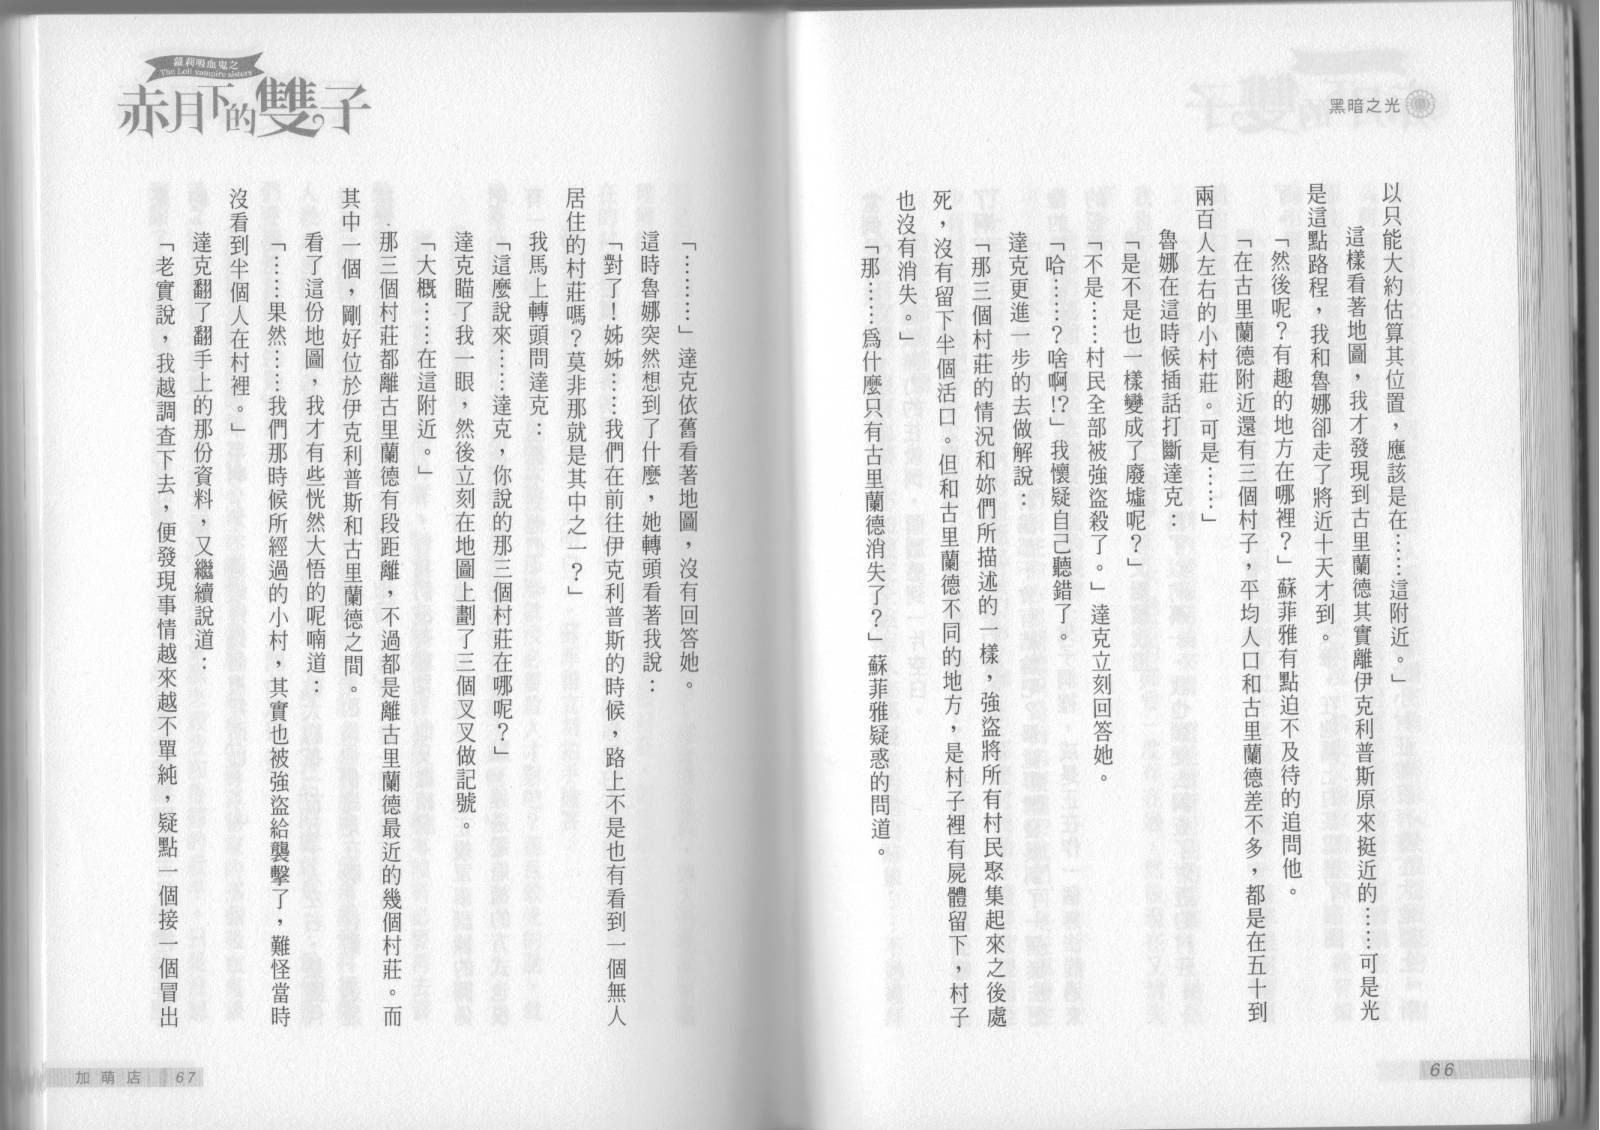 黑暗之光
以只能大約估算其位置，應該是在……這附近。」
這樣看著地圖，我才發現到古里蘭德其實離伊克利普斯原來挺近的……可是光
是這點路程，我和魯娜卻走了將近十天才到。
「然後呢？有趣的地方在哪裡？」蘇菲雅有點迫不及待的追問他。
「在古里蘭德附近還有三個村子，平均人口和古里蘭德差不多，都是在五十到
兩百人左右的小村莊。可是……」
魯娜在這時候插話打斷達克：
「是不是也一樣變成了廢墟呢？」
「不是……村民全部被強盜殺了。」達克立刻回答她。
「哈……？啥啊!?」我懷疑自己聽錯了。
達克更進一步的去做解說：
「那三個村莊的情況和妳們所描述的一樣，強盜將所有村民聚集起來之後處
死，沒有留下半個活口。但和古里蘭德不同的地方，是村子裡有屍體留下，村子
也沒有消失。」
「那……爲什麼只有古里蘭德消失了？」蘇菲雅疑惑的問道。
66
蘿莉吸血鬼之
The Loli vampire sisters
赤月下的雙子
「………」達克依舊看著地圖，沒有回答她。
這時魯娜突然想到了什麼，她轉頭看著我說：
「對了！姊姊……我們在前往伊克利普斯的時候，路上不是也有看到一個無人
居住的村莊嗎？莫非那就是其中之一？」
我馬上轉頭問達克：
「這麼說來……達克，你說的那三個村莊在哪呢？」
達克瞄了我一眼，然後立刻在地圖上劃了三個叉叉做記號。
「大概……在這附近。」
那三個村莊都離古里蘭德有段距離，不過都是離古里蘭德最近的幾個村莊。而
其中一個，剛好位於伊克利普斯和古里蘭德之間。
看了這份地圖，我才有些恍然大悟的呢喃道：
「……果然……我們那時候所經過的小村，其實也被強盜給襲擊了，難怪當時
沒看到半個人在村裡。」
達克翻了翻手上的那份資料，又繼續說道：
「老實說，我越調查下去，便發現事情越來越不單純，疑點一個接一個冒出
加萌店 67